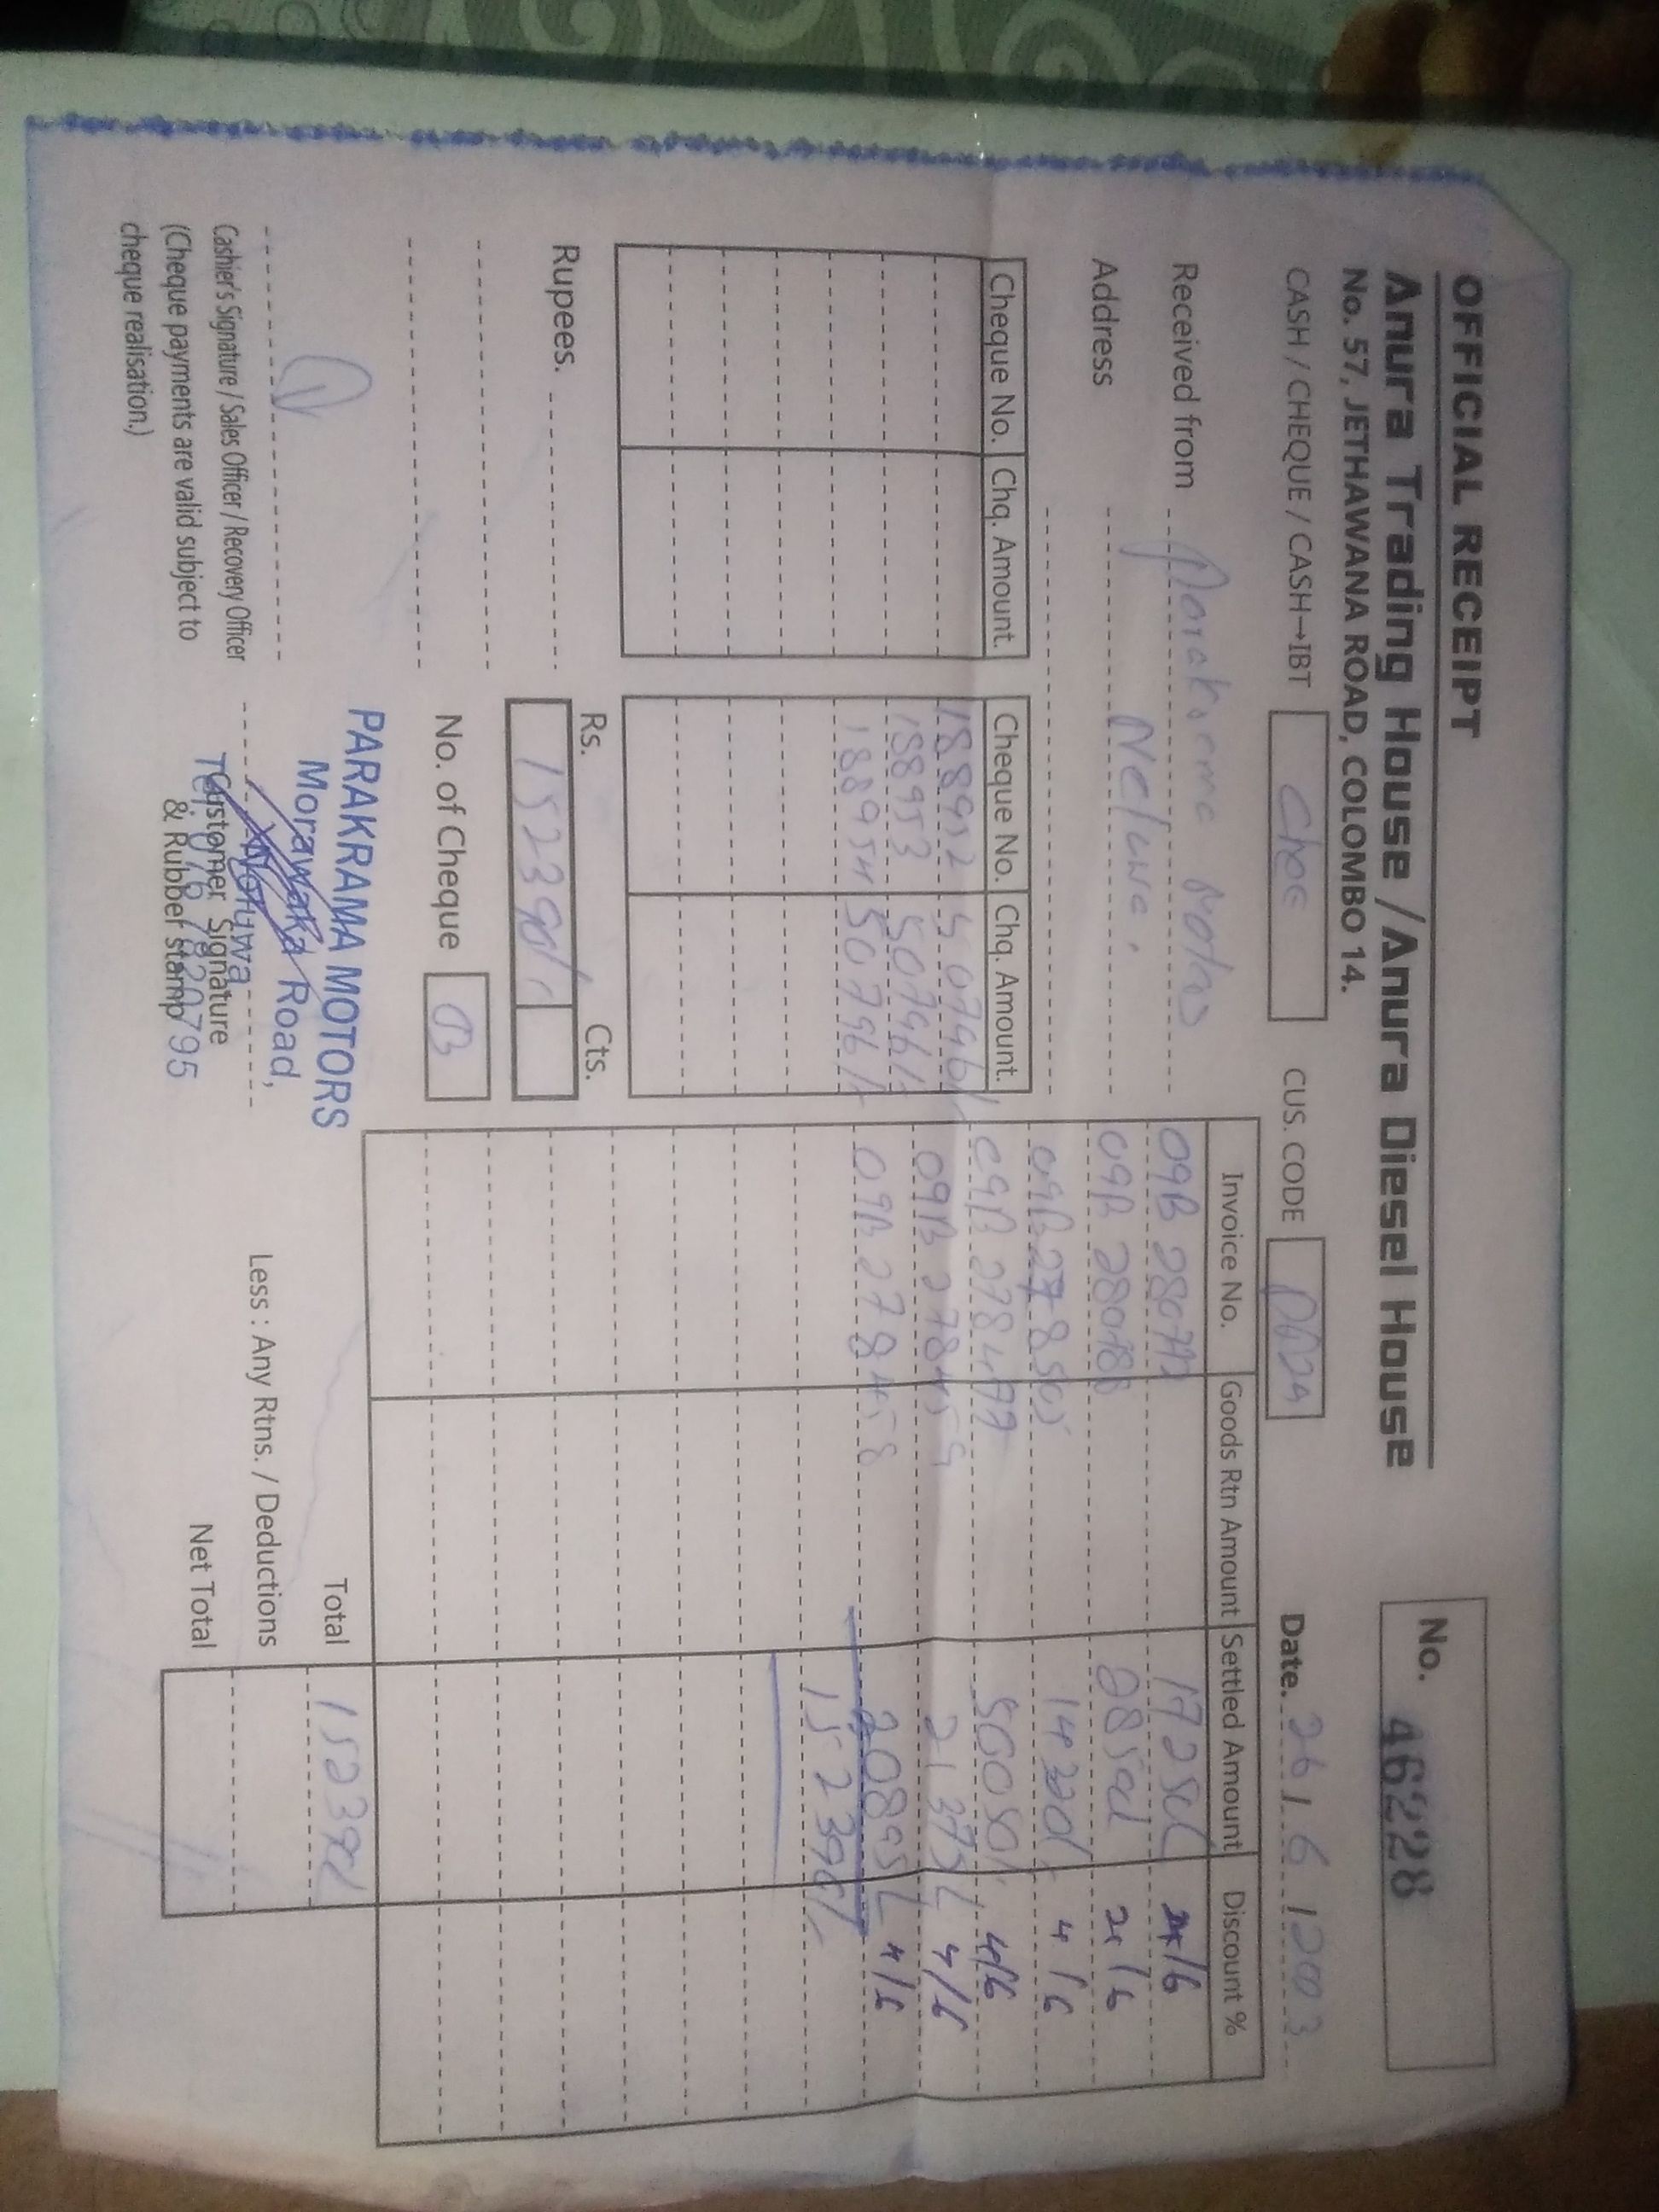 OFFICIAL RECEIPT
Anura Trading House / Anura Diesel House
No. 57, JETHAWANA ROAD, COLOMBO 14.
No. 46228
CASH / CHEQUE / CASH→IBT
CUS. CODE
Date. 26/6/2023
Received from Parakrama Motors
Address Neluwa.
Cheque No. Chq. Amount.
Cheque No. Chq. Amount.
188952 50796/-
188953 50796/-
188954 50796/-
Invoice No. Goods Rtn Amount Settled Amount Discount %
09B
09B
09B 278505 14320/- 4/6
09B 278477 50050/- 4/6
09B 278459 21375/- 4/6
09B 278458 20895/- 4/6
152390/-
Rupees.
Rs. Cts.
152390/-
No. of Cheque 03
Total 152390/-
Less : Any Rtns. / Deductions
Net Total
Cashier's Signature / Sales Officer / Recovery Officer
(Cheque payments are valid subject to
cheque realisation.)
PARAKRAMA MOTORS
Morawaka Road,
Neluwa
Customer Signature
& Rubber stamp